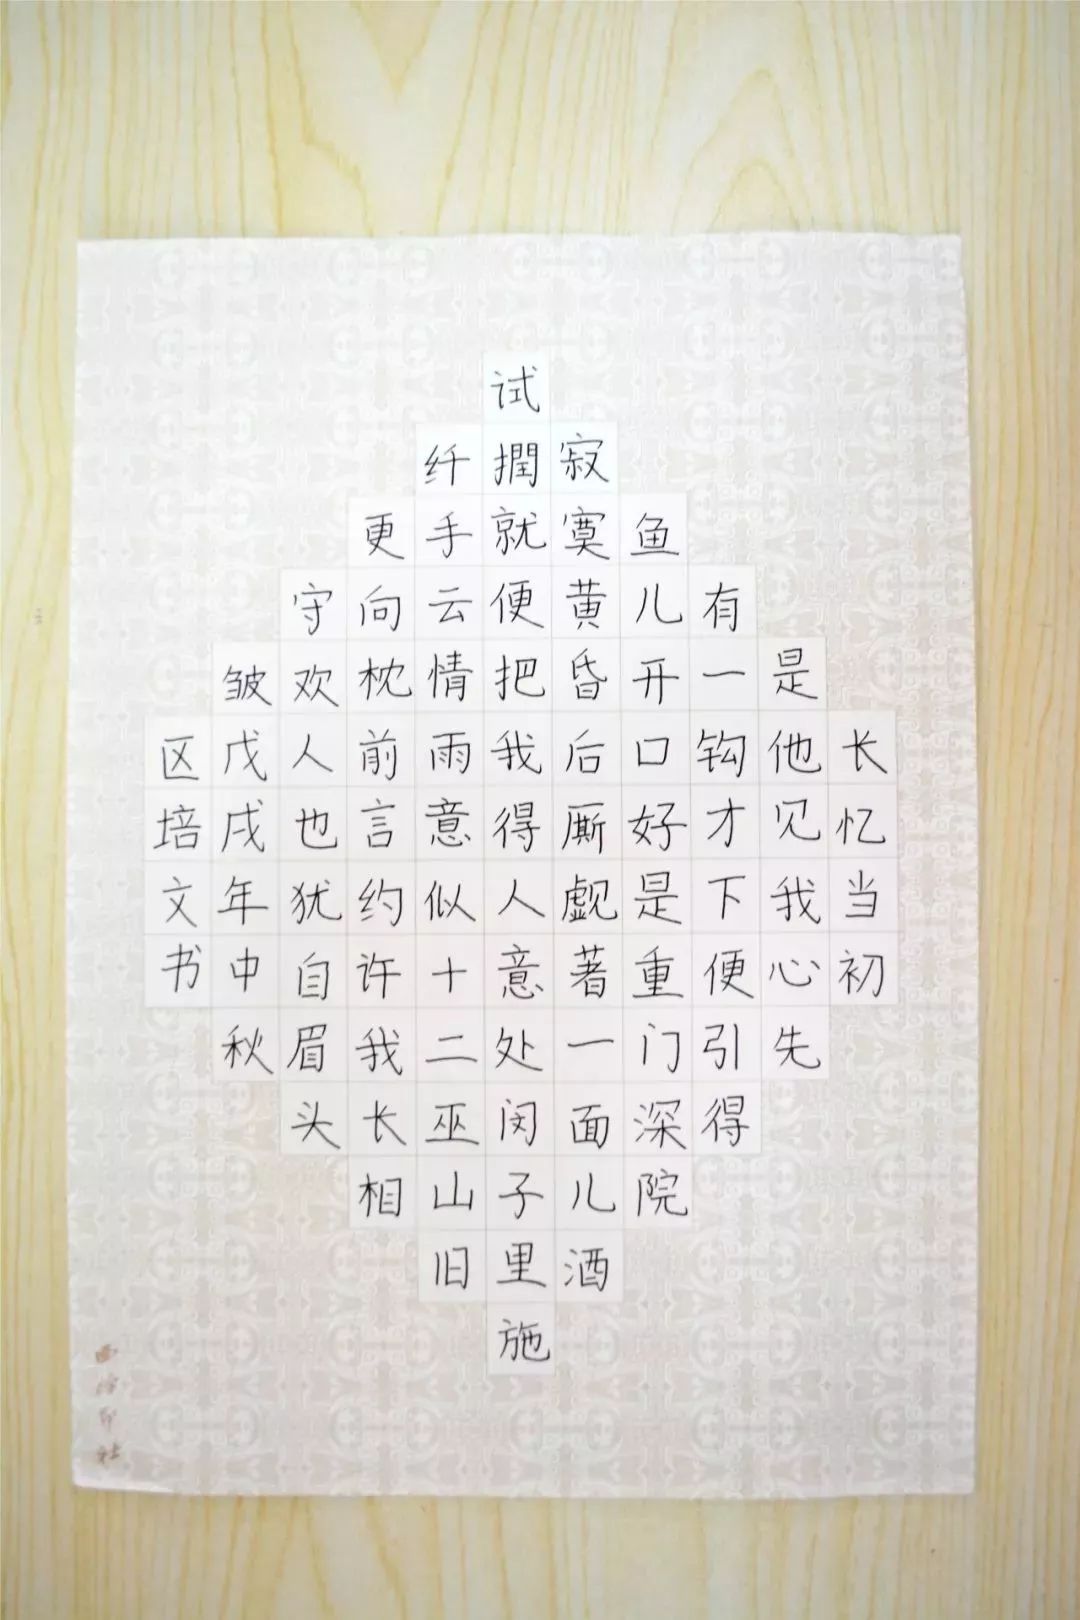 长忆当初
是他见我心先
有一钩才下便引得
鱼儿开口好是重门深院
寂寞黄昏后厮觑著一面儿酒
试撋就便把我得人意处闵子里施
纤手云情雨意似十二巫山旧
更向枕前言约许我长相
守欢人也犹自眉头
皱戊戌年中秋
区培文书
西泠印社